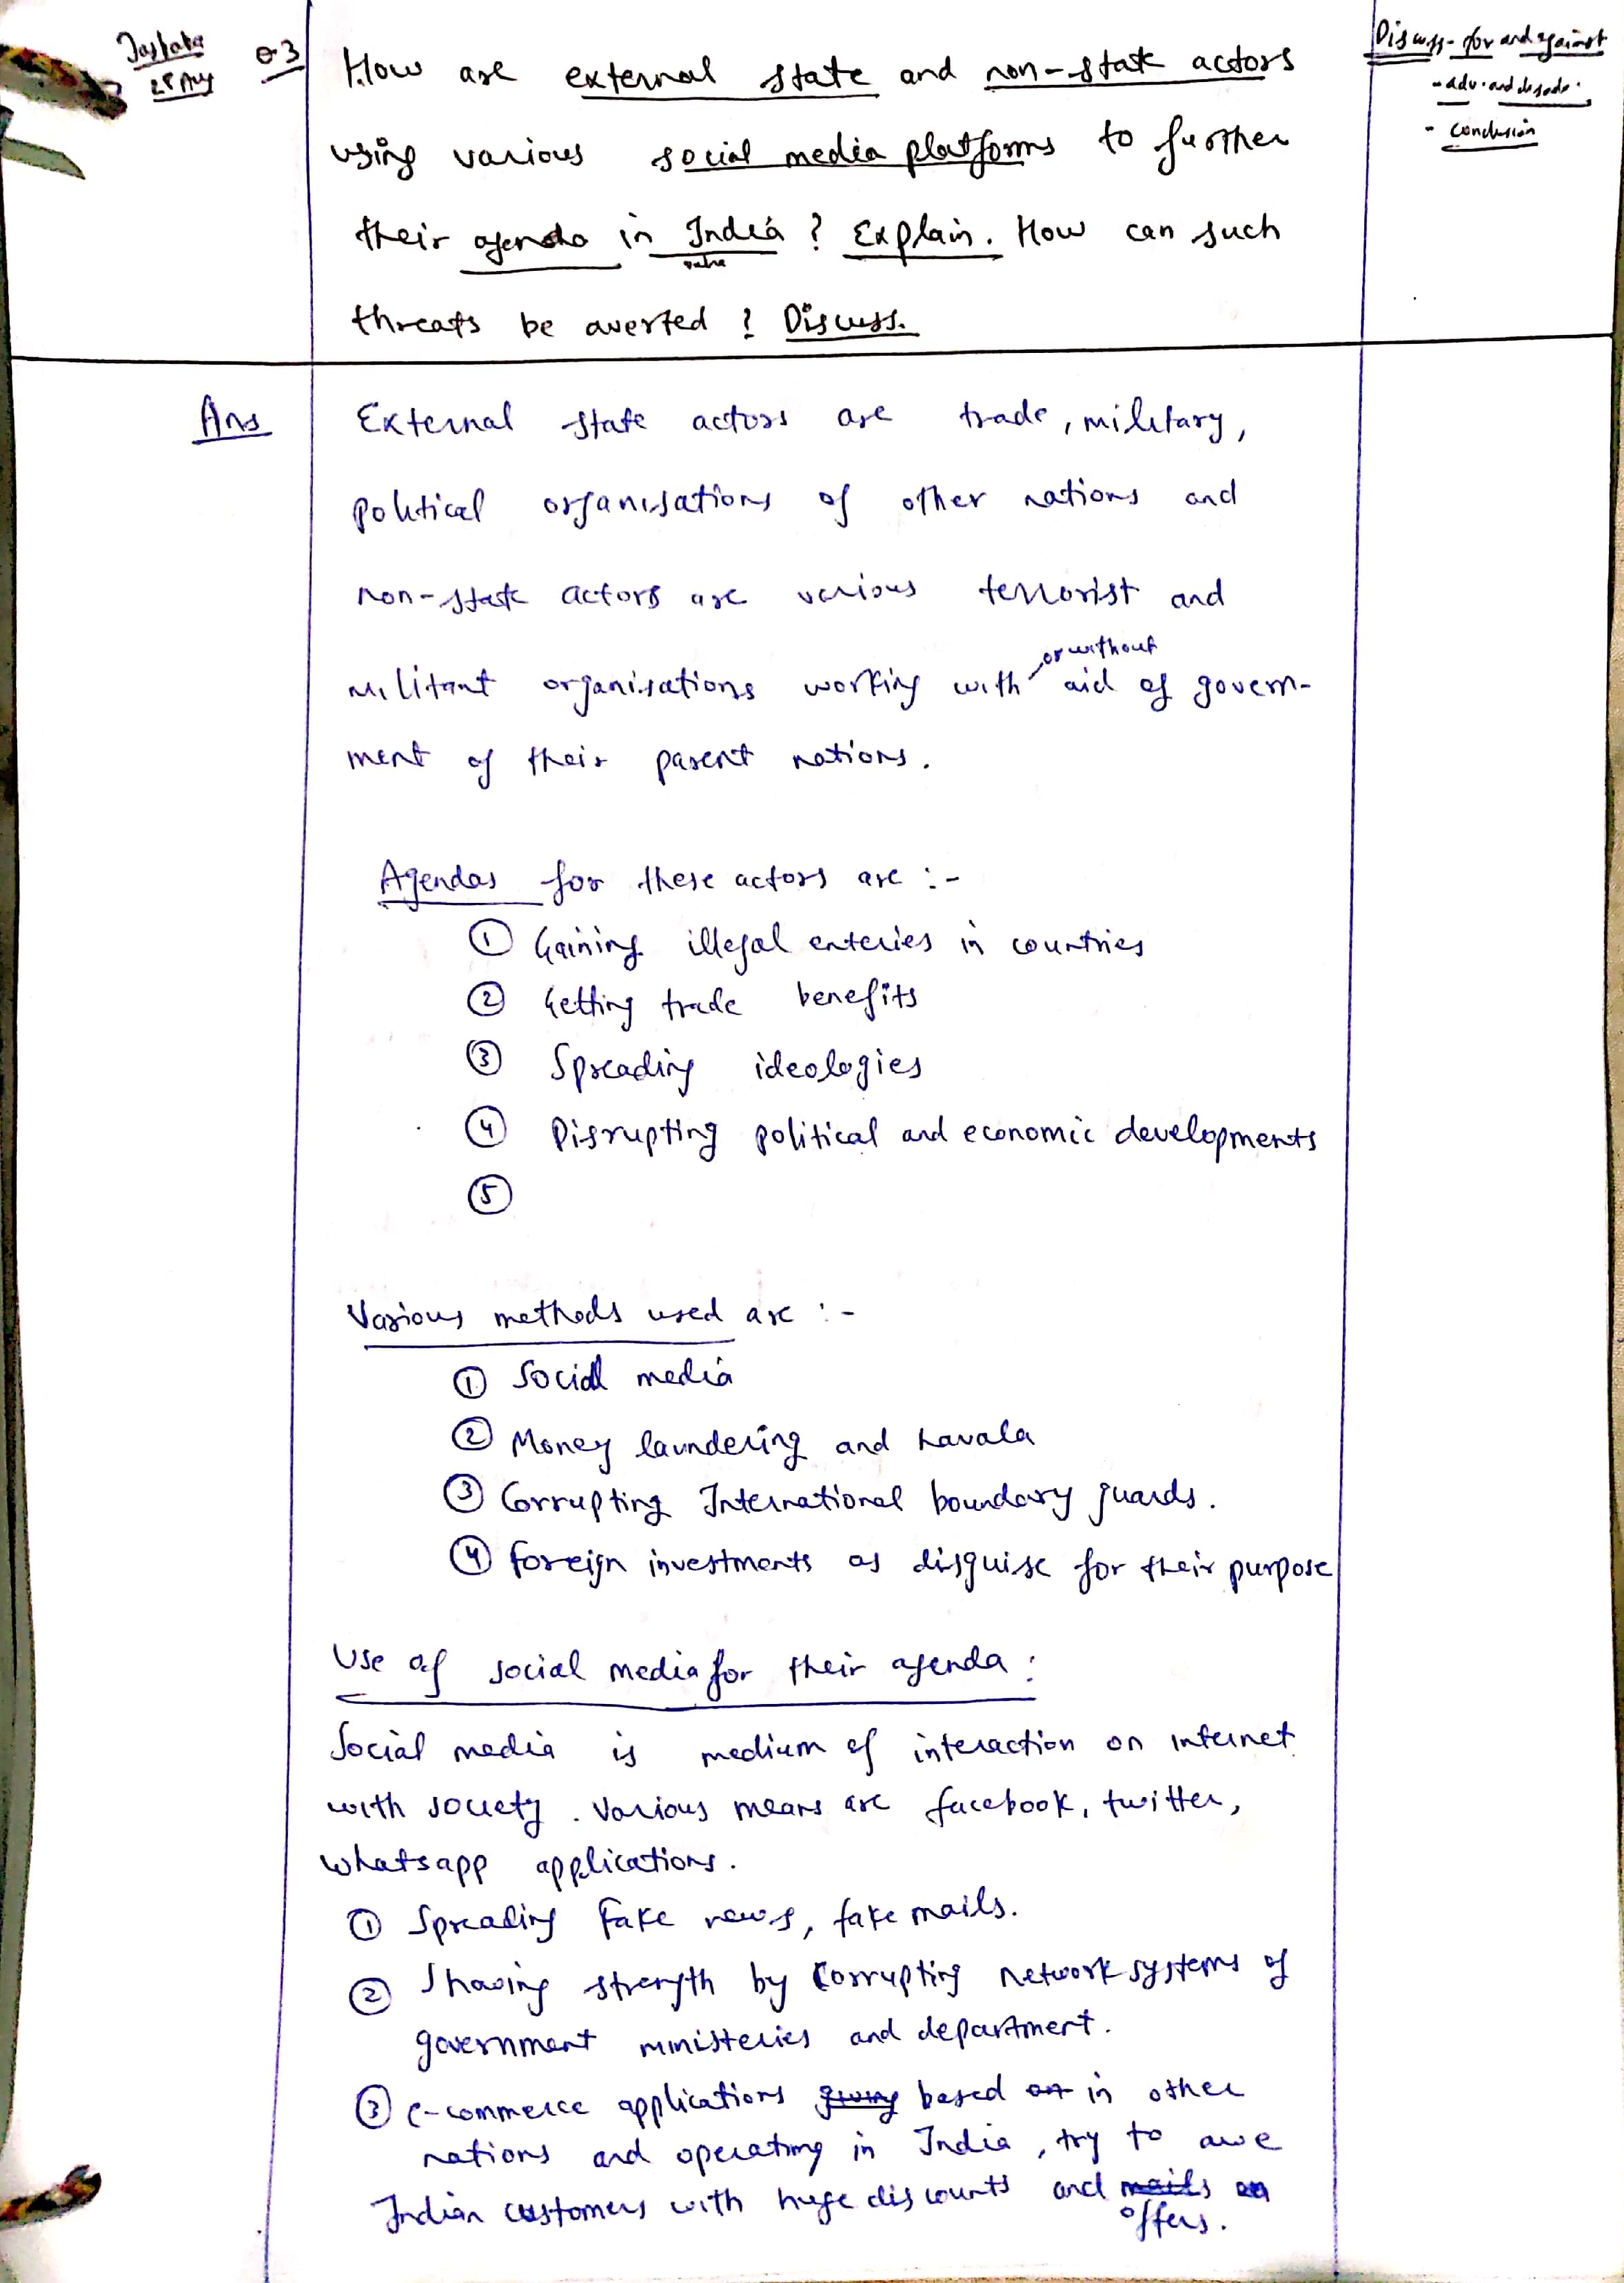 28 Aug
Q.3
How are external state and non-state actors
using various social media platforms to further
their agenda in India? Explain. How can such
threats be averted? Discuss.
Discuss - for and against
- adv. and disadv.
- conclusion
Ans
External state actors are trade, military,
political organisations of other nations and
non-state actors are various terrorist and
militant organisations working with or without aid of govern-
ment of their parent nations.
Agendas for these actors are :-
① Gaining illegal enteries in countries
② Getting trade benefits
③ Spreading ideologies
④ Disrupting political and economic developments
⑤
Various methods used are :-
① Social media
② Money laundering and havala
③ Corrupting International boundary guards.
④ foreign investments as disguise for their purpose
Use of social media for their agenda :
Social media is medium of interaction on internet
with society. Various means are facebook, twitter,
whatsapp applications.
① Spreading fake news, fake mails.
② Showing strength by corrupting network systems of
government ministeries and department.
③ e-commerce applications giving based on in other
nations and operating in India, try to awe
Indian customers with huge discounts and mails on
offers.